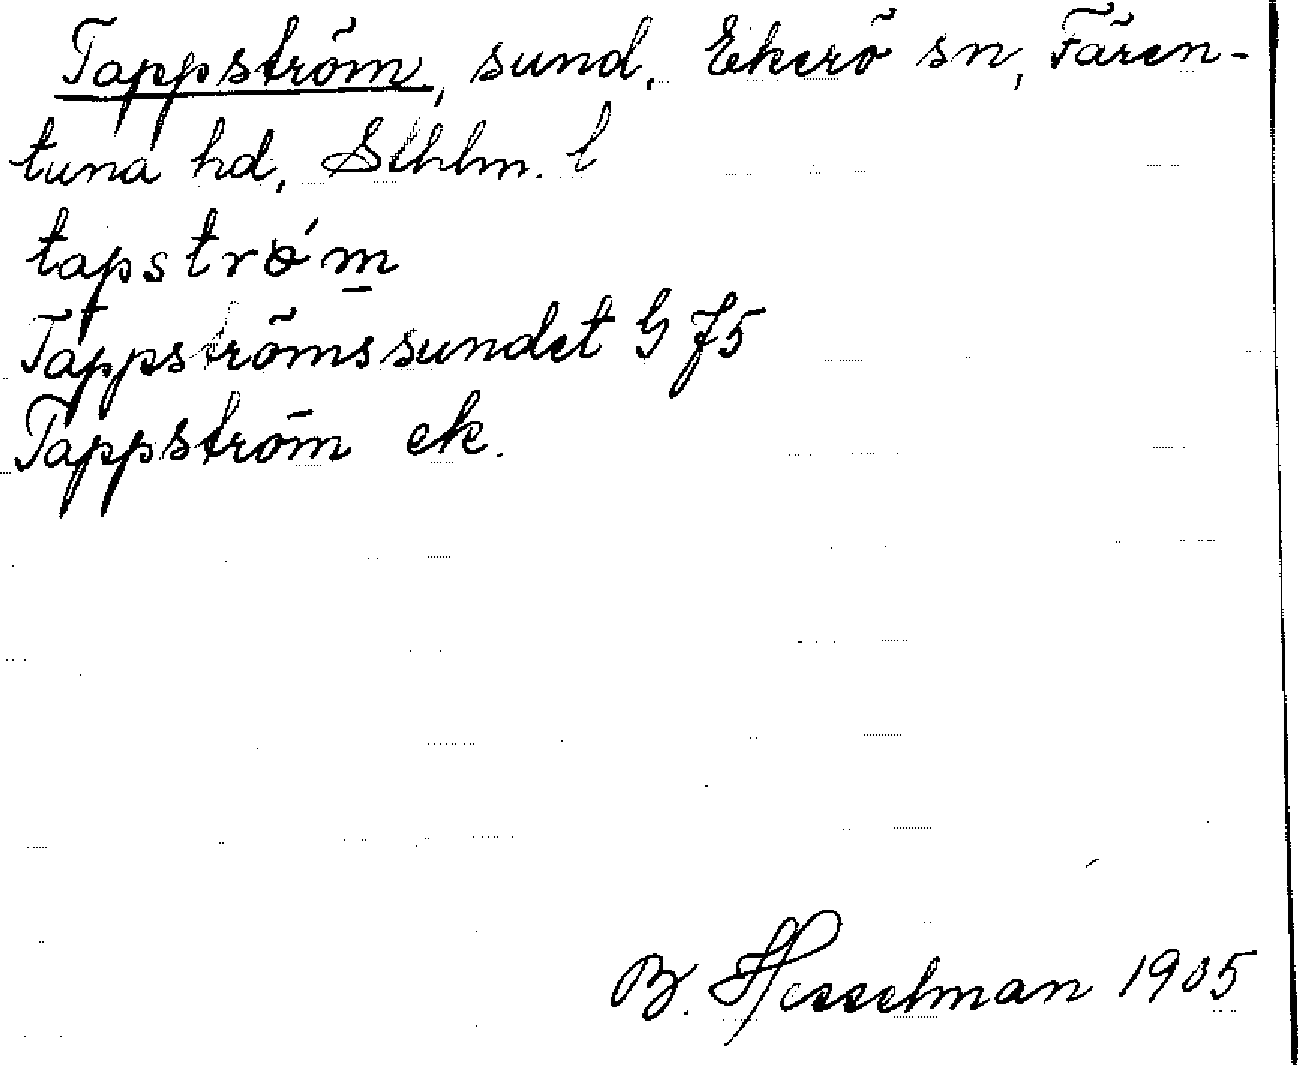 Tappström, sund, Ekerö sn, Fären-
tuna hd, Sthlm. l
tapströ́m
Tappströmssundet G J5
Tappström ek.
B. Hesselman 1905